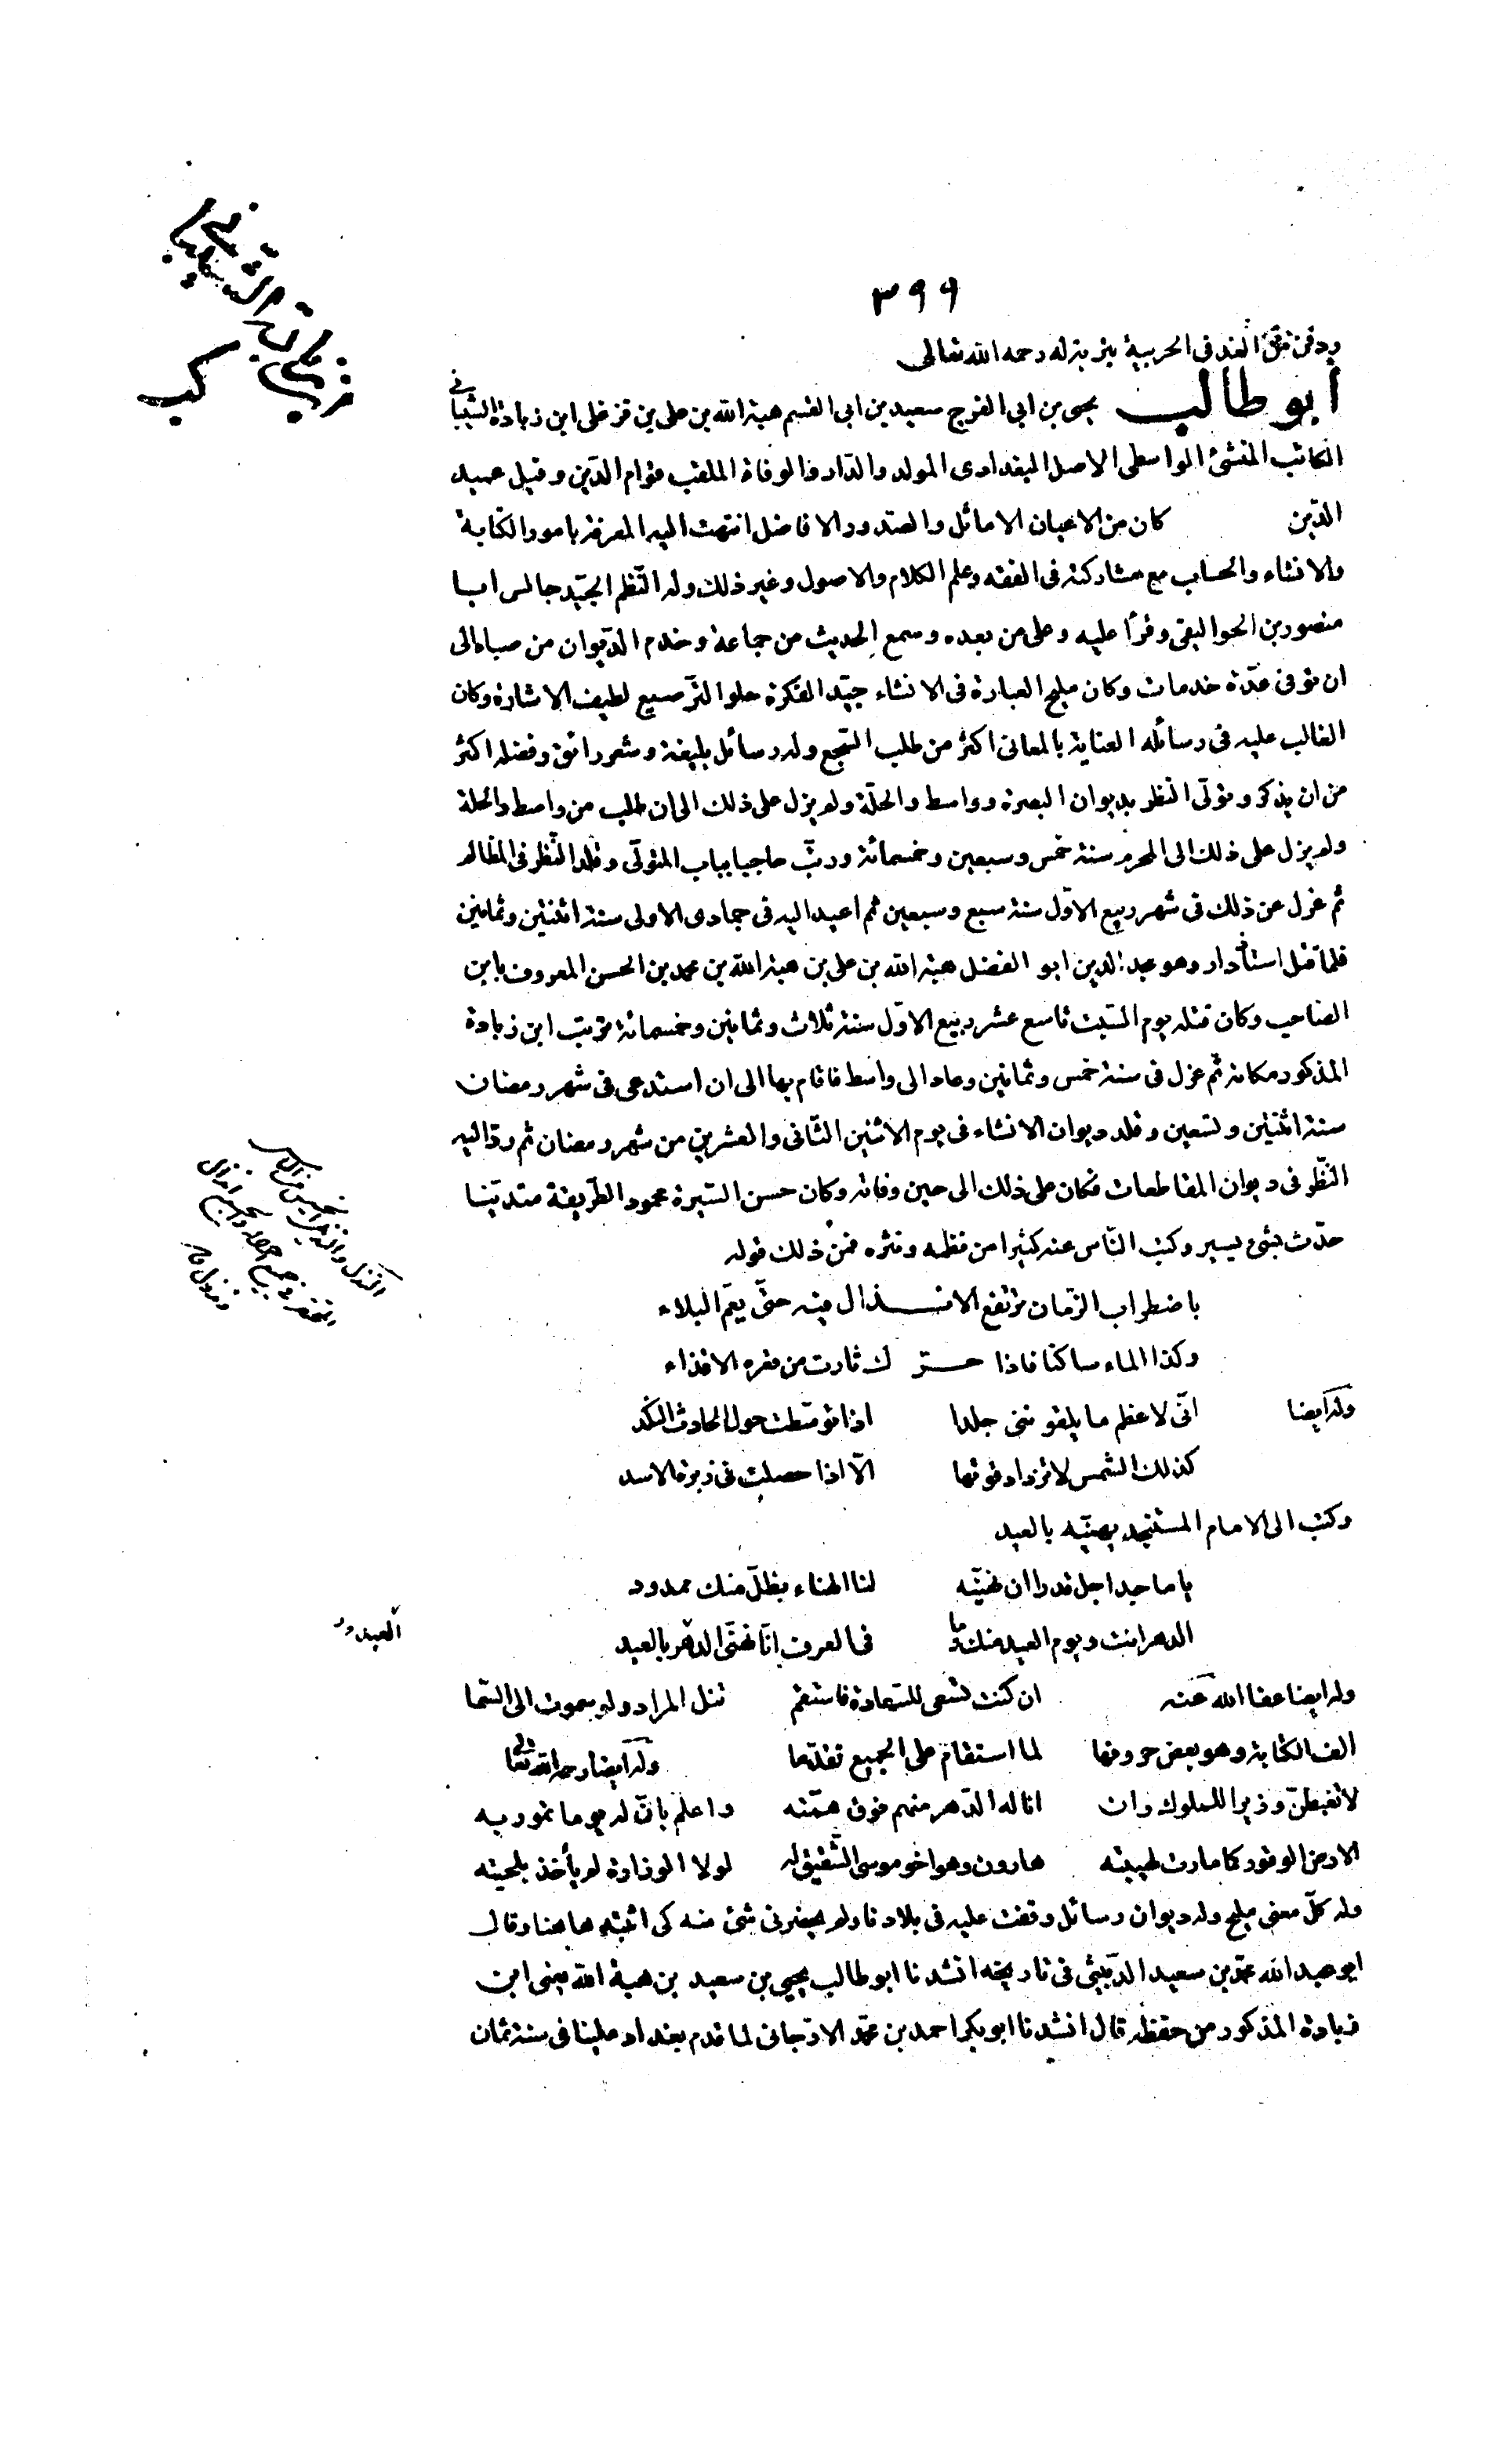 ٣٩٩
ودفن من الغد فى الحربية بتربة له رحمه الله تعالى
أبو طالب يحيى بن ابى الفرج سعيد بن ابى القسم هبة الله بن على بن قزغلى ابن زيادة الشيبانى
الكاتب المنشئ الواسطى الاصل البغدادى المولد والدّار والوفاة الملقب قوام الدّين وقيل عميد
الدّين كان من الاعيان الاماثل والصّدور الافاضل انتهت اليه المعرفة بامور الكتابة
والانشاء والحساب مع مشاركته فى الفقه وعلم الكلام والاصول وغير ذلك وله النّظم الجيّد جالس ابا
منصور بن الجواليقى وقرأ عليه وعلى من بعده وسمع الحديث من جماعة وخدم الدّيوان من صباه الى
ان توفى عدّة خدمات وكان مليح العبارة فى الانشاء جيّد الفكرة حلو التّرصيع لطيف الاشارة وكان
الغالب عليه فى رسائله العناية بالمعانى اكثر من طلب السّجع وله رسائل بليغة وشعر رائق وفضله اكثر
من ان يذكر وتولّى النظر بديوان البصرة وواسط والحلّة ولم يزل على ذلك الى ان طلب من واسط والحلة
ولم يزل على ذلك الى المحرم سنة خمس وسبعين وخمسمائة ورتّب حاجبا بباب المتولّى وقلد النّظر فى المظالم
ثم عزل عن ذلك فى شهر ربيع الاوّل سنة سبع وسبعين ثم اعيد اليه فى جمادى الاولى سنة اثنتين وثمانين
فلمّا قتل استأدار وهو مجد الدين ابو الفضل هبة الله بن على بن هبة الله بن محمد بن الحسن المعروف بابن
الصّاحب وكان قتله يوم السّبت تاسع عشر ربيع الاوّل سنة ثلاث وثمانين وخمسمائة ترتب ابن زيادة
المذكور مكانه ثم عزل فى سنة خمس وثمانين وعاد الى واسط فاقام بها الى ان استدعى فى شهر رمضان
سنة اثنتين وتسعين وقلد ديوان الانشاء فى يوم الاثنين الثّانى والعشرين من شهر رمضان ثم ردّ اليه
النّظر فى ديوان المقاطعات فكان على ذلك الى حين وفاته وكان حسن السّيرة محمود الطّريقة متديّنا
حدّث بشئ يسير وكتب النّاس عنه كثيرا من نظمه ونثره فمن ذلك قوله
باضطراب الزّمان ترتفع الانـــذال فيه حتّى يعمّ البلاء
وكذا الماء ساكنا فاذا حــرّ ك ثارت من قعره الاقذاء
وله ايضا انّى لاعظم ما يلقوننى جلدا اذا توسّطت حول الحادث النّكد
كذلك الشمس لا تزداد قوتها الّا اذا حصلت فى زبرة الاسد
وكتب الى الامام المستنجد يهنّيه بالعيد
يا ماجدا جل قدرا ان نهنّيه لنا الهناء بظلّ منك ممدود
الدهر انت ويوم العيد منك وما فى العرف انّا نهنّى الدّهر بالعيد
العيدود
وله ايضا عفا الله عنه ان كنت تسعى للسّعادة فاستقم تنل المراد ولو سموت الى السّما
الف الكتابة وهو بعض حروفها لما استقام على الجميع تقدّما وله ايضا رحمه الله تعالى
لا تغبطنّ وزيرا للملوك وان اناله الدّهر منهم فوق همّته واعلم بانّ له يوما تمور به
الارض الوقور كما مارت لهيبته هارون وهو اخو موسى الشّقيق له لولا الوزارة لم يأخذ بلحيته
وله كلّ معنى مليح وله ديوان رسائل وقفت عليه فى بلادنا ولم يحضرنى شئ منه كى اثبته هاهنا وقال
ابو عبد الله محمّد بن سعيد الدّبيثى فى تاريخه انشدنا ابو طالب يحيى بن سعيد بن هبة الله يعنى ابن
زيادة المذكور من حفظه قال انشدنا ابو بكر احمد بن محمّد الارّجانى لما قدم بغداد علينا فى سنة ثمان